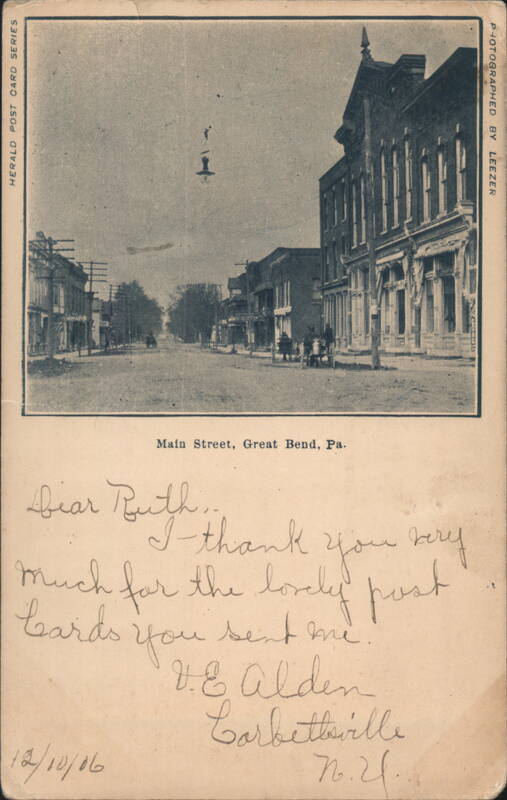 HERALD POST CARD SERIES
PHOTOGRAPHED BY LEEZER
Main Street, Great Bend, Pa.
Dear Ruth..
I thank you very
much for the lovely post
Cards you sent me.
V. E Alden
Corbettsville
N. Y.
12/10/06